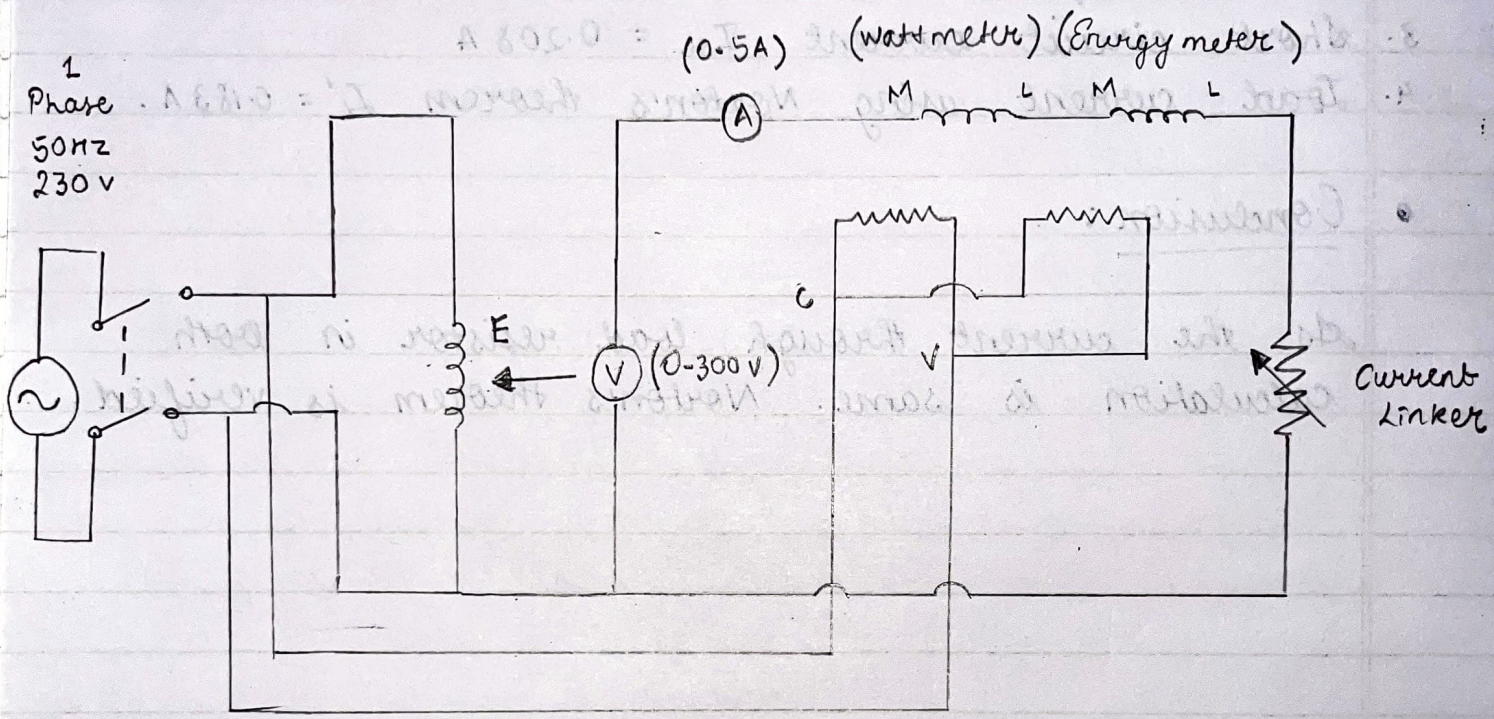 1
Phase
50Hz
230 V
(0-5A)
(wattmeter)
(Energy meter)
A
M
L
M
L
E
V
(0-300 V)
C
V
Current
Linker